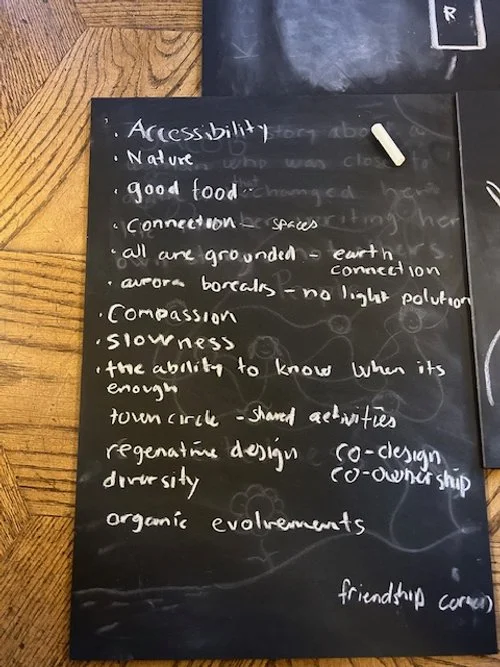 R
· Accessibility
· Nature
· good food..
· Connection - spaces
· all are grounded - earth connection
· aurora borealis - no light polution
· Compassion
· Slowness
· the ability to know when its
enough
town circle - shared activities
regenative design co-design
diversity co-ownership
organic evolvements
friendship corner)